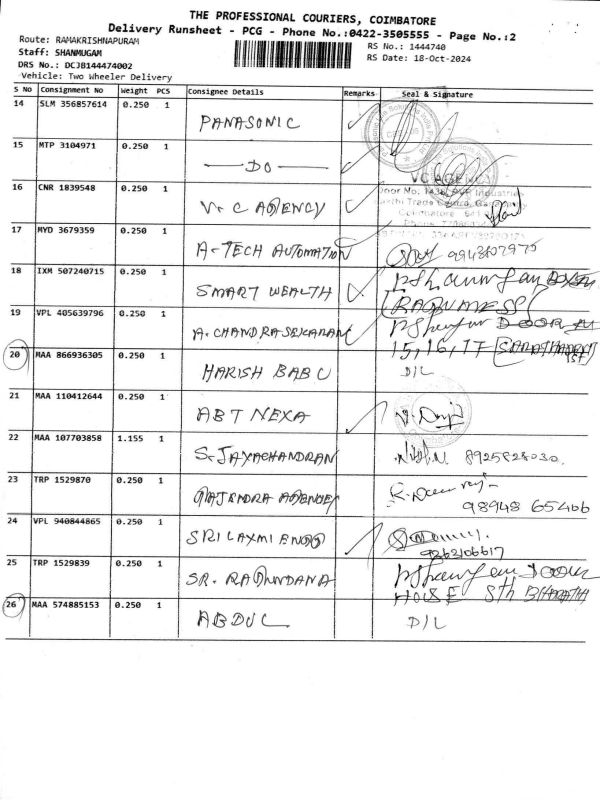 THE PROFESSIONAL COURIERS, COIMBATORE
Delivery Runsheet - PCG - Phone No.:0422-3505555 - Page No.:2
Route: RAMAKRISHNAPURAM
RS No.: 1444740
Staff: SHANMUGAM
RS Date: 18-Oct-2024
DRS No.: DCJB144474002
Vehicle: Two Wheeler Delivery
S No Consignment No Weight PCS Consignee Details Remarks Seal & Signature
14 SLM 356857614 0.250 1 PANASONIC
15 MTP 3104971 0.250 1 DO
VC AGENCY
16 CNR 1839548 0.250 1 V.C AGENCY
Coimbatore
17 MYD 3679359 0.250 1 A-TECH AUTOMATION
18 IXM 507240715 0.250 1 SMART WEALTH
19 VPL 405639796 0.250 1 A.CHANDRASEKARAN
15, 16, 17
20 MAA 866936305 0.250 1 HARISH BABU D/L
21 MAA 110412644 0.250 1 ABT NEXA
22 MAA 107703858 1.155 1 S.JAYACHANDRAN 8925828030.
23 TRP 1529870 0.250 1 RAJENDRA AGENCIES
98948 65466
24 VPL 940844865 0.250 1 SRI LAXMI ENGG
9262106617
25 TRP 1529839 0.250 1 SR. RAGUNDANA
HOUSE
26 MAA 574885153 0.250 1 ABDUL D/L